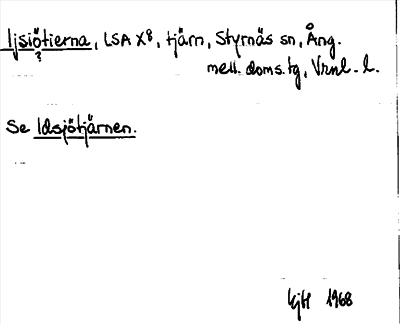 Ijsiötierna, LSA X8, tjärn, Styrnäs sn, Ång.
?
mell. doms.tg, Vrnl. l.
Se Idsjötjärnen.
1968